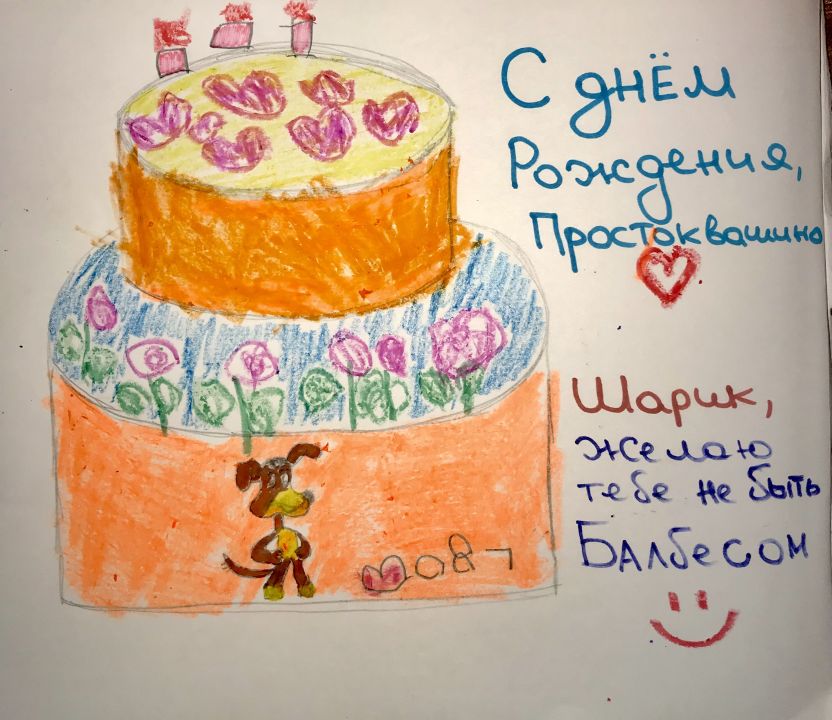 С днём
Рождения,
Простоквашино
Шарик,
желаю
тебе не быть
Балбесом